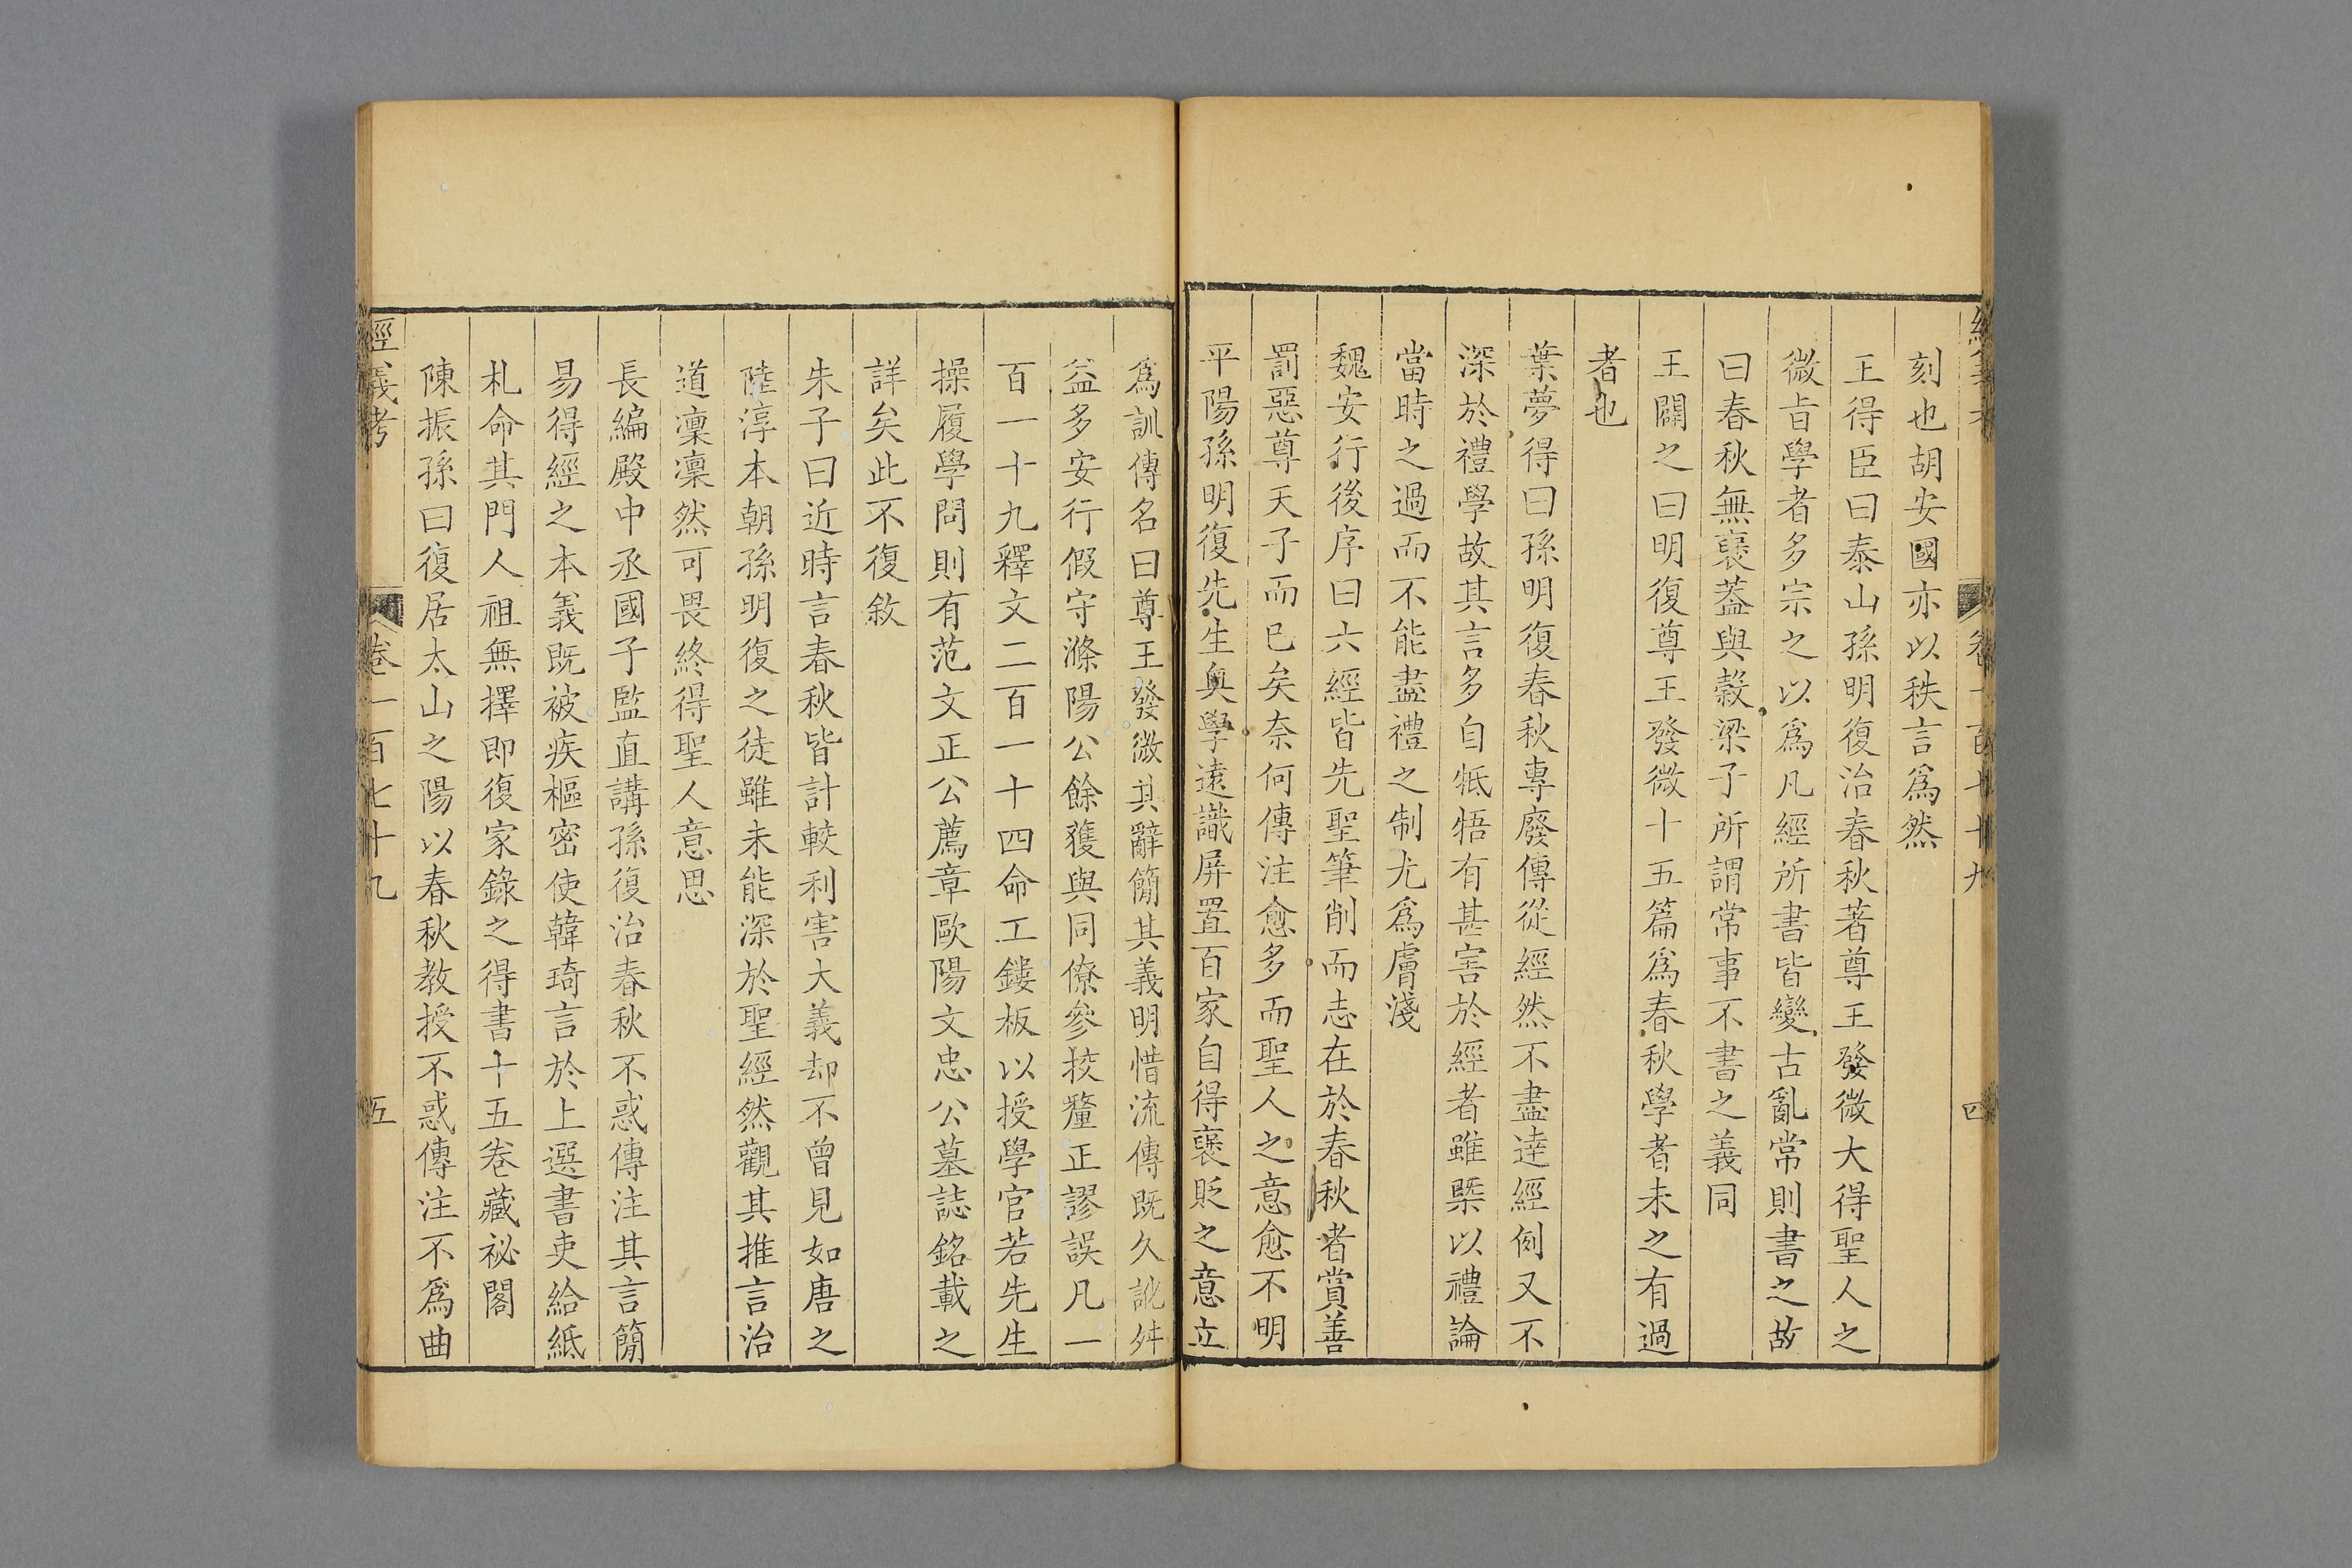 經義考
卷一百七十九
四
刻也胡安國亦以秩言爲然
王得臣曰泰山孫明復治春秋著尊王發微大得聖人之
微旨學者多宗之以爲凡經所書皆變古亂常則書之故
曰春秋無襃葢與榖梁子所謂常事不書之義同
王闢之曰明復尊王發微十五篇爲春秋學者未之有過
者也
葉夢得曰孫明復春秋專廢傳從經然不盡達經例又不
深於禮學故其言多自牴牾有甚害於經者雖槩以禮論
當時之過而不能盡禮之制尤爲膚淺
魏安行後序曰六經皆先聖筆削而志在於春秋者賞善
罰惡尊天子而已矣奈何傳注愈多而聖人之意愈不明
平陽孫明復先生奥學遠識屏置百家自得襃貶之意立
爲訓傳名曰尊王發微其辭簡其義明惜流傳既久訛舛
益多安行假守滁陽公餘獲與同僚參挍釐正謬誤凡一
百一十九釋文二百一十四命工鏤板以授學官若先生
操履學問則有范文正公薦章歐陽文忠公墓誌銘載之
詳矣此不復敘
朱子曰近時言春秋皆計較利害大義却不曾見如唐之
陸淳本朝孫明復之徒雖未能深於聖經然觀其推言治
道凜凜然可畏終得聖人意思
長編殿中丞國子監直講孫復治春秋不惑傳注其言簡
易得經之本義既被疾樞密使韓琦言於上選書吏給紙
札命其門人祖無擇即復家錄之得書十五卷藏祕閣
陳振孫曰復居太山之陽以春秋教授不惑傳注不爲曲
經義考
卷一百七十九
五